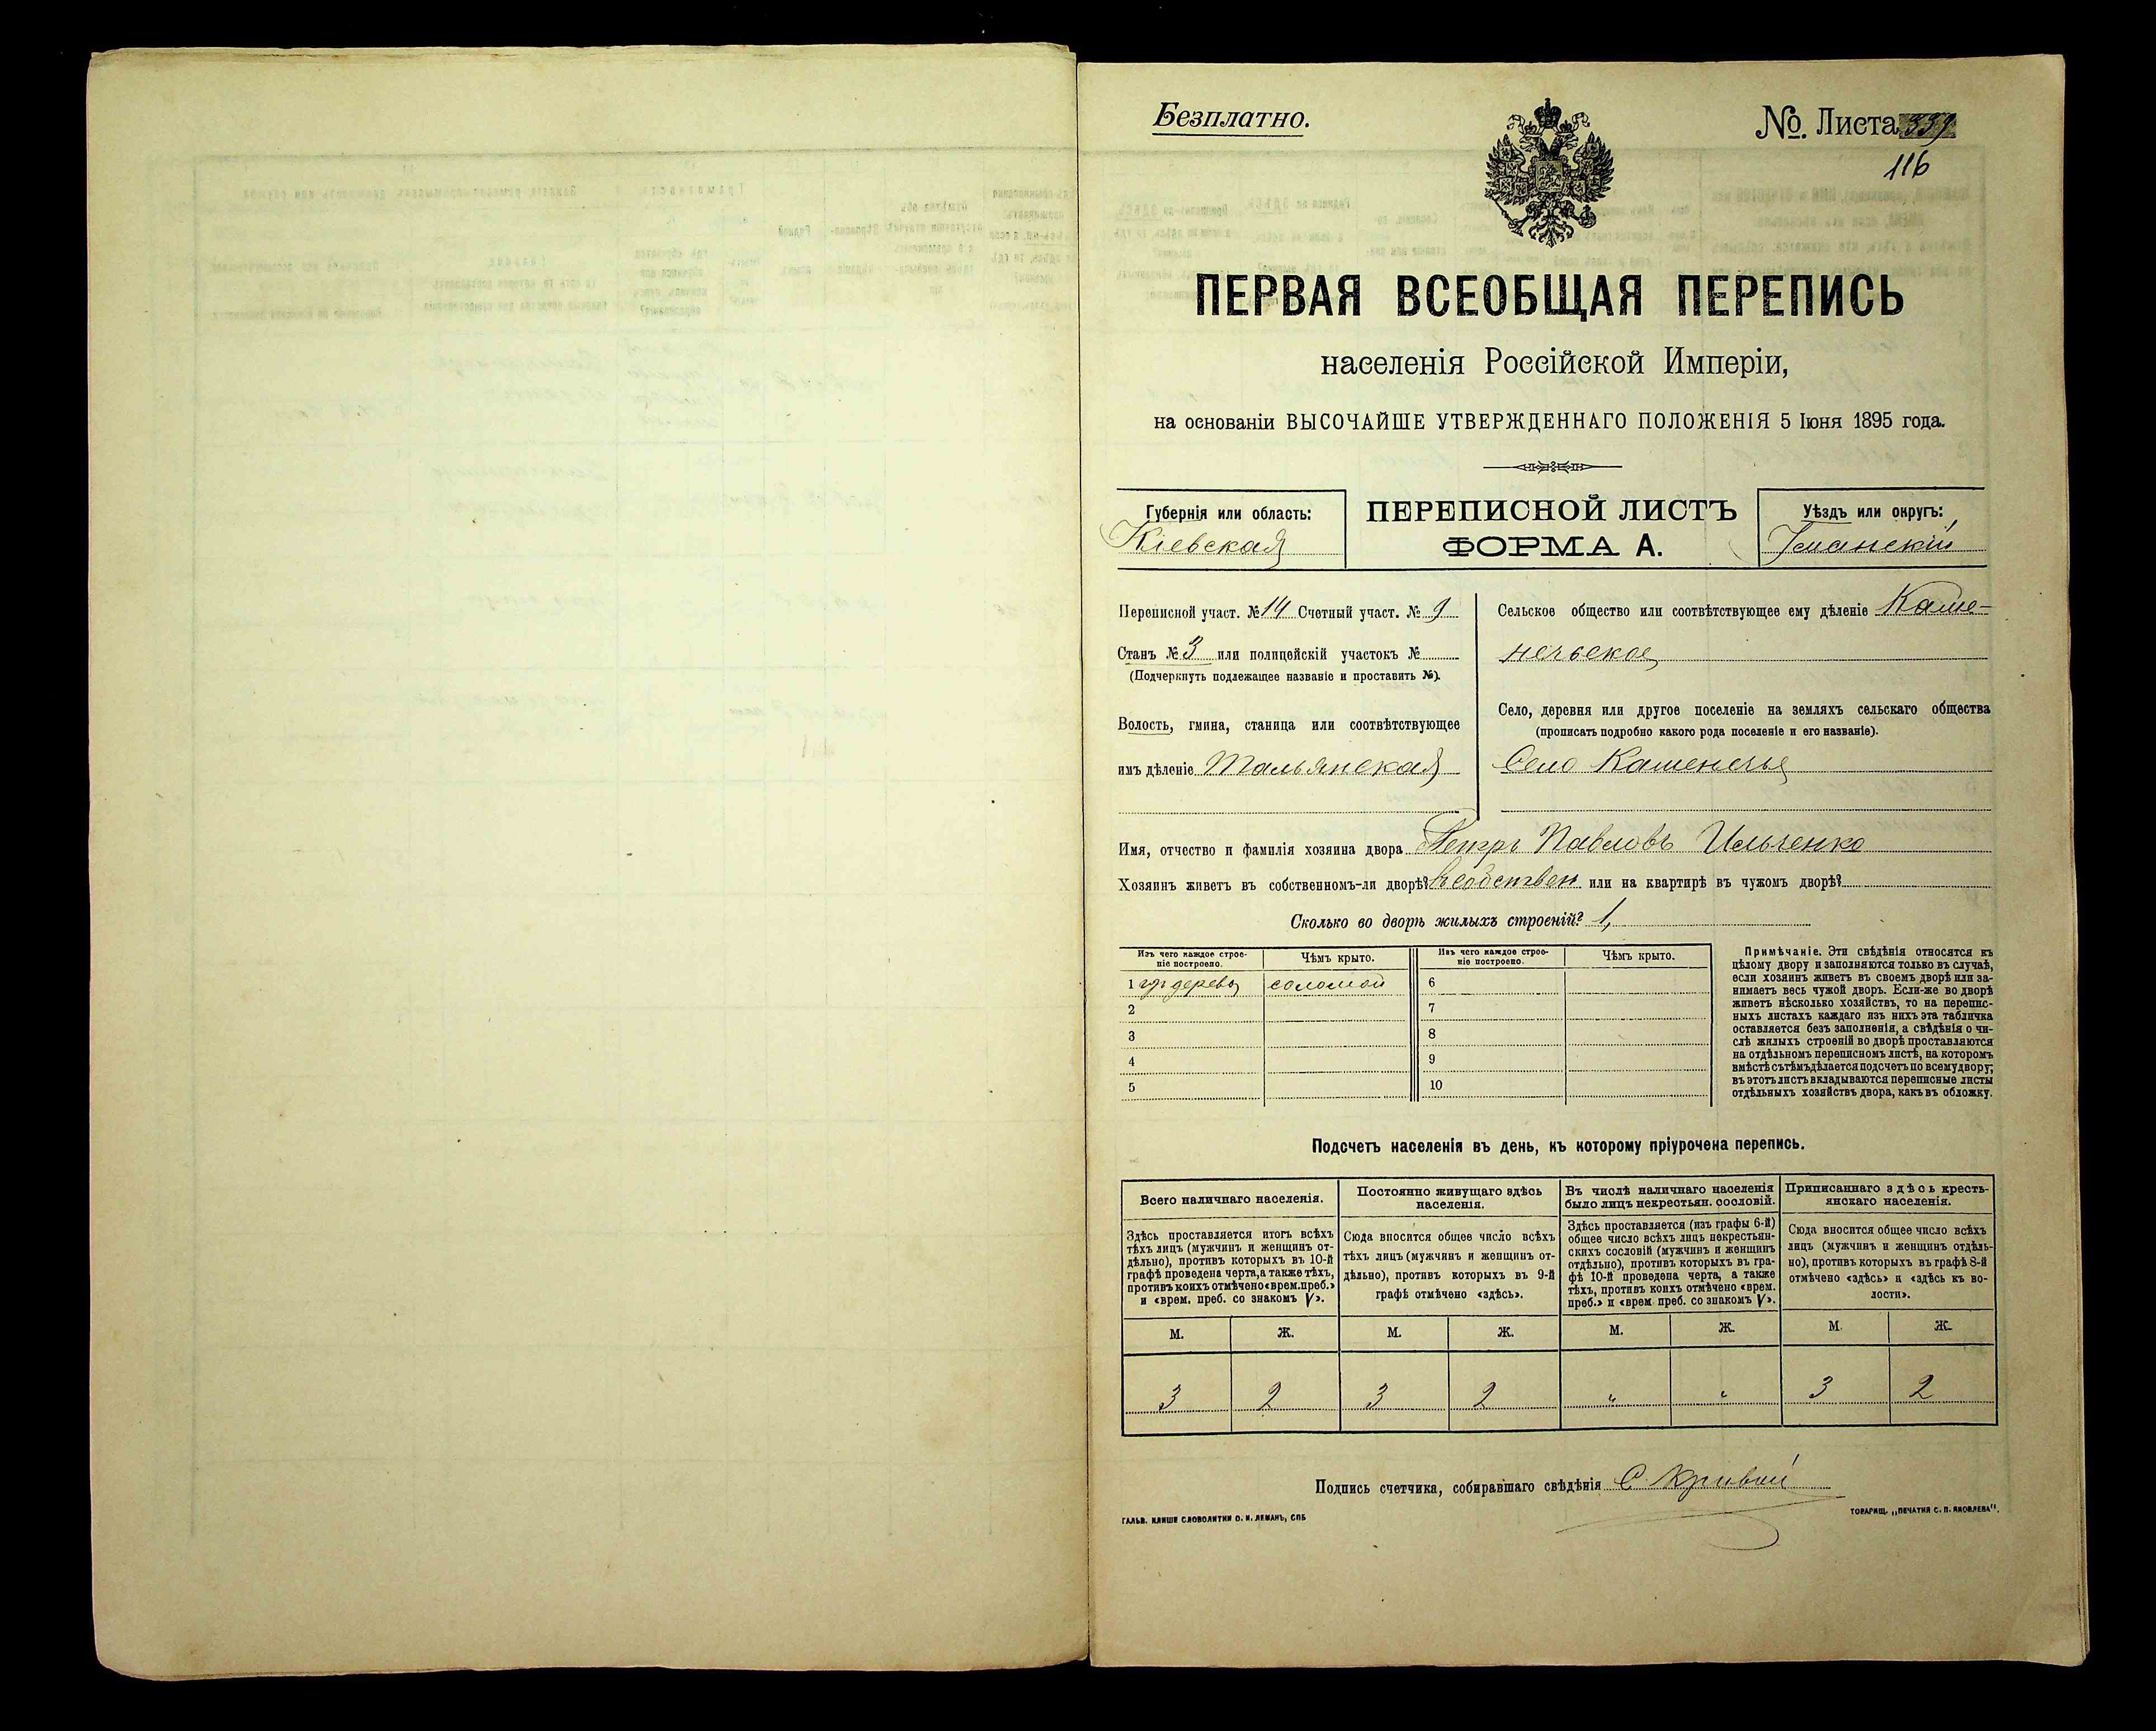 Безплатно.
№. Листа 339
116
ПЕРВАЯ ВСЕОБЩАЯ ПЕРЕПИСЬ
населенія Россійской Имперіи,
на основаніи ВЫСОЧАЙШЕ УТВЕРЖДЕННАГО ПОЛОЖЕНІЯ 5 Іюня 1895 года.
Губернія или область:
Кіевская
ПЕРЕПИСНОЙ ЛИСТЪ
ФОРМА А.
Уѣздъ или округъ:
Уманскій
Переписной участ. № 14 Счетный участ. № 9
Станъ № 3 или полицейскій участокъ №
(Подчеркнуть подлежащее названіе и проставить №).
Волость, гмина, станица или соотвѣтствующее
имъ дѣленіе Тальянская
Сельское общество или соотвѣтствующее ему дѣленіе Каме-
нечьское
Село, деревня или другое поселеніе на земляхъ сельскаго общества
(прописать подробно какого рода поселеніе и его названіе).
Село Каменечье
Имя, отчество и фамилія хозяина двора Петръ Павловъ Ильченко
Хозяинъ живетъ въ собственномъ-ли дворѣ? въ собствен или на квартирѣ въ чужомъ дворѣ?
Сколько во дворѣ жилыхъ строеній? 1,
Изъ чего каждое строе-
ніе построено.
Чѣмъ крыто.
Изъ чего каждое строе-
ніе построено.
Чѣмъ крыто.
1 дерева соломой 6
2 7
3 8
4 9
5 10
Примѣчаніе. Эти свѣдѣнія относятся къ
цѣлому двору и заполняются только въ случаѣ,
если хозяинъ живетъ въ своемъ дворѣ или за-
нимаетъ весь чужой дворъ. Если-же во дворѣ
живетъ нѣсколько хозяйствъ, то на перепис-
ныхъ листахъ каждаго изъ нихъ эта табличка
оставляется безъ заполненія, а свѣдѣнія о чи-
слѣ жилыхъ строеній во дворѣ проставляются
на отдѣльномъ переписномъ листѣ, на которомъ
вмѣстѣ съ тѣмъ дѣлается подсчетъ по всему двору;
въ этотъ листъ вкладываются переписные листы
отдѣльныхъ хозяйствъ двора, какъ въ обложку.
Подсчетъ населенія въ день, къ которому пріурочена перепись.
Всего наличнаго населенія.
Здѣсь проставляется итогъ всѣхъ
тѣхъ лицъ (мужчинъ и женщинъ от-
дѣльно), противъ которыхъ въ 10-й
графѣ проведена черта, а также тѣхъ,
противъ коихъ отмѣчено «врем. преб.»
и «врем. преб. со знакомъ V».
Постоянно живущаго здѣсь
населенія.
Сюда вносится общее число всѣхъ
тѣхъ лицъ (мужчинъ и женщинъ от-
дѣльно), противъ которыхъ въ 9-й
графѣ отмѣчено «здѣсь».
Въ числѣ наличнаго населенія
было лицъ некрестьян. сословій.
Здѣсь проставляется (изъ графы 6-й)
общее число всѣхъ лицъ некрестьян-
скихъ сословій (мужчинъ и женщинъ
отдѣльно), противъ которыхъ въ гра-
фѣ 10-й проведена черта, а также
тѣхъ, противъ коихъ отмѣчено «врем.
преб.» и «врем. преб. со знакомъ V».
Приписаннаго здѣсь кресть-
янскаго населенія.
Сюда вносится общее число всѣхъ
лицъ (мужчинъ и женщинъ отдѣль-
но), противъ которыхъ въ графѣ 8-й
отмѣчено «здѣсь» и «здѣсь къ во-
лости».
М. Ж. М. Ж. М. Ж. М. Ж.
3 2 3 2 " " 3 2
Подпись счетчика, собиравшаго свѣдѣнія С Кривый
ГАЛЬВ. КЛИШЕ СЛОВОЛИТНИ О. И. ЛЕМАНЪ, СПБ
ТОВАРИЩ. „ПЕЧАТНЯ С. П. ЯКОВЛЕВА".